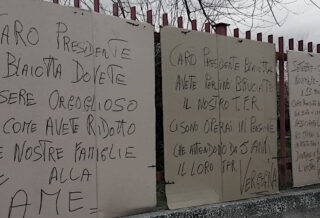 CARO PRESIDENTE
BLAIOTTA DOVETE
ESSERE ORGOGLIOSO
COME AVETE RIDOTTO
E NOSTRE FAMIGLIE
ALLA
FAME
CARO PRESIDENTE BLAIOTTA
AVETE PERSINO BRUCIATO
IL NOSTRO TFR
CI SONO OPERAI IN PENSIONE
CHE ATTENDONO DA 5 ANNI
IL LORO TFR
VERGOGNA